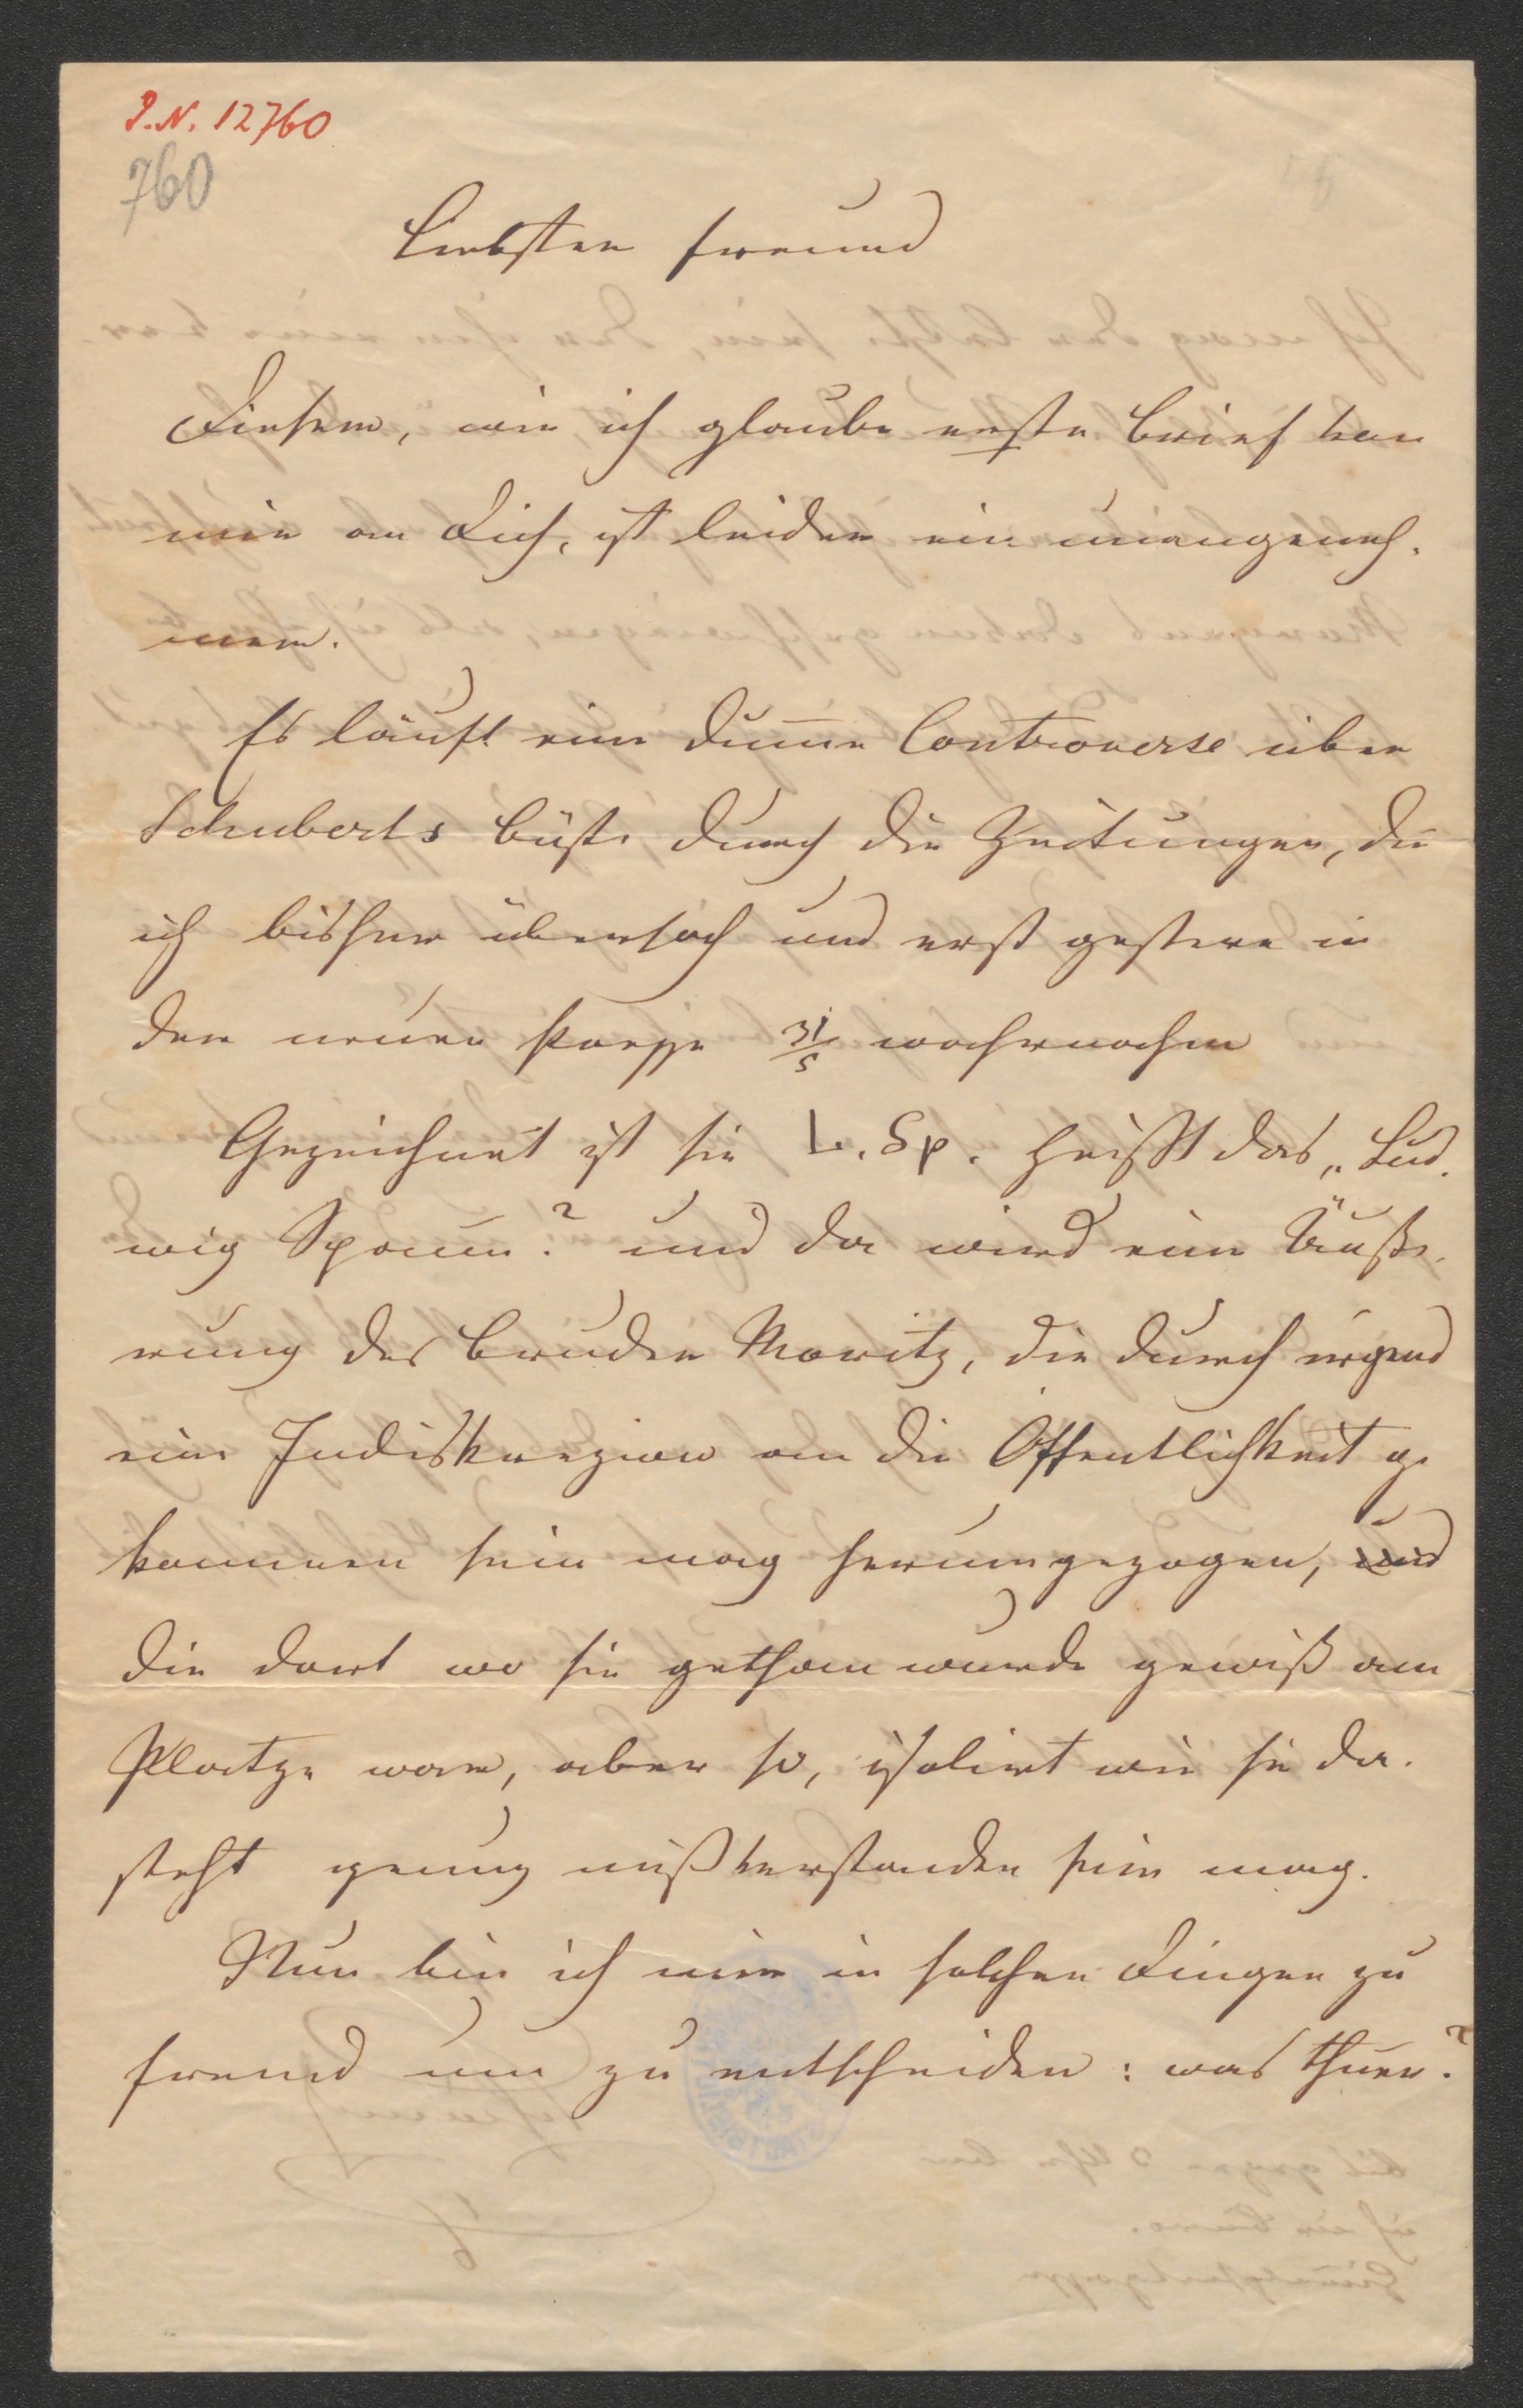 I.N. 12760
760
Liebster Freund
Dieser, wie ich glaube erste Brief von
mir an Dich, ist leider ein unangeneh-
mer.
Es läuft eine dum̄e Controverse über
Schuberts Büste durch die Zeitungen, die
ich bisher übersah und erst gestern in
der neuen Presse 31/5 wahrnahm
Gezeichnet ist sie L. Sp. heißt das „Lud-
wig Spaun"? und da wird eine Äuße-
rung des Bruder Moritz, die durch irgend
eine Indiskrezion an die Öffentlichkeit ge
kommen sein mag herumgezogen, und
die dort wo sie gethan wurde gewiß am
Platze war, aber so, isolirt wie sie da-
steht genug mißverstanden sein mag.
Nun bin ich mir in solchen Dingen zu
fremd um zu entscheiden: was thun?